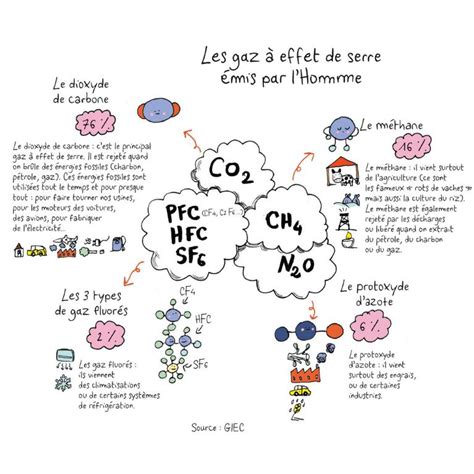 Les gaz à effet de serre
émis par l'Homme
Le dioxyde
de carbone
76 %
Le dioxyde de carbone : c'est le principal
gaz à effet de serre. Il est rejeté quand
on brûle des énergies fossiles (charbon,
pétrole, gaz). Ces énergies fossiles sont
utilisées tout le temps et pour presque
tout : pour faire tourner nos usines,
pour les moteurs des voitures,
des avions, pour fabriquer
de l'électricité...
Le méthane
16 %
Le méthane : il vient surtout
de l'agriculture (ce sont
les fameux « rots de vaches »
mais aussi la culture du riz).
Le méthane est également
rejeté par les décharges
ou libéré quand on extrait
du pétrole, du charbon
ou du gaz.
CO2
PFC (CF4, C2F6...)
HFC
SF6
CH4
N2O
Les 3 types
de gaz fluorés
2 %
Les gaz fluorés :
ils viennent
des climatisations
ou de certains systèmes
de réfrigération.
CF4
HFC
SF6
Le protoxyde
d'azote
6 %
Le protoxyde
d'azote : il vient
surtout des engrais,
ou de certaines
industries.
Source : GIEC